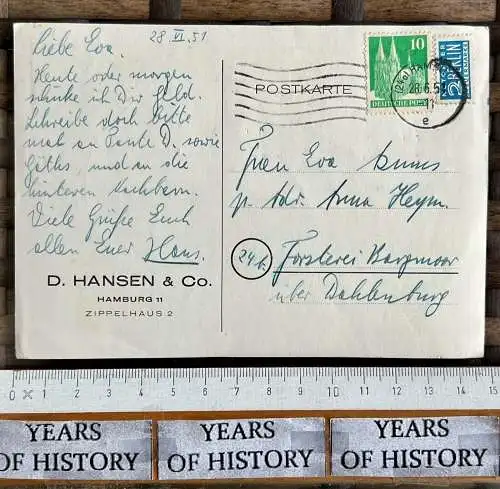 28 VI. 51
Liebe Eva.
Heute oder morgen
schicke ich Dir Geld.
Schreibe doch bitte
mal an Tante D. sowie
und an die
hinteren Nachbarn.
Viele Grüße Euch
allen Euer Hans.
D. HANSEN & CO.
HAMBURG 11
ZIPPELHAUS 2
POSTKARTE
10
DEUTSCHE POST
2
BERLIN
28.6.51
e
Frau Eva
p. Adr. Anna Heym
24a
Försterei
über Dahlenburg
0 1 2 3 4 5 6 7 8 9 10 11 12 13 14 15
YEARS
OF HISTORY
YEARS
OF HISTORY
YEARS
OF HISTORY